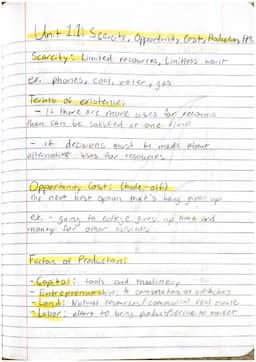 Unit 1.1: Scarcity, Opportunity Cost, Production, PPC
Scarcity: Limited resources, Limitless want
ex. phones, coal, water, gas
Terms of existence:
- If there are more uses for resources
than can be satisfied at one time
- if decisions must be made about
alternative uses for resources
Opportunity Cost: (trade-off)
the next best option that's being given up
ex. - going to college gives up time and
money for other
Factors of Production:
- Capital: tools and machinery
- Entrepreneurship: combination of all factors
- Land: Natural resources/commercial real estate
- Labor: effort to bring product/service to market